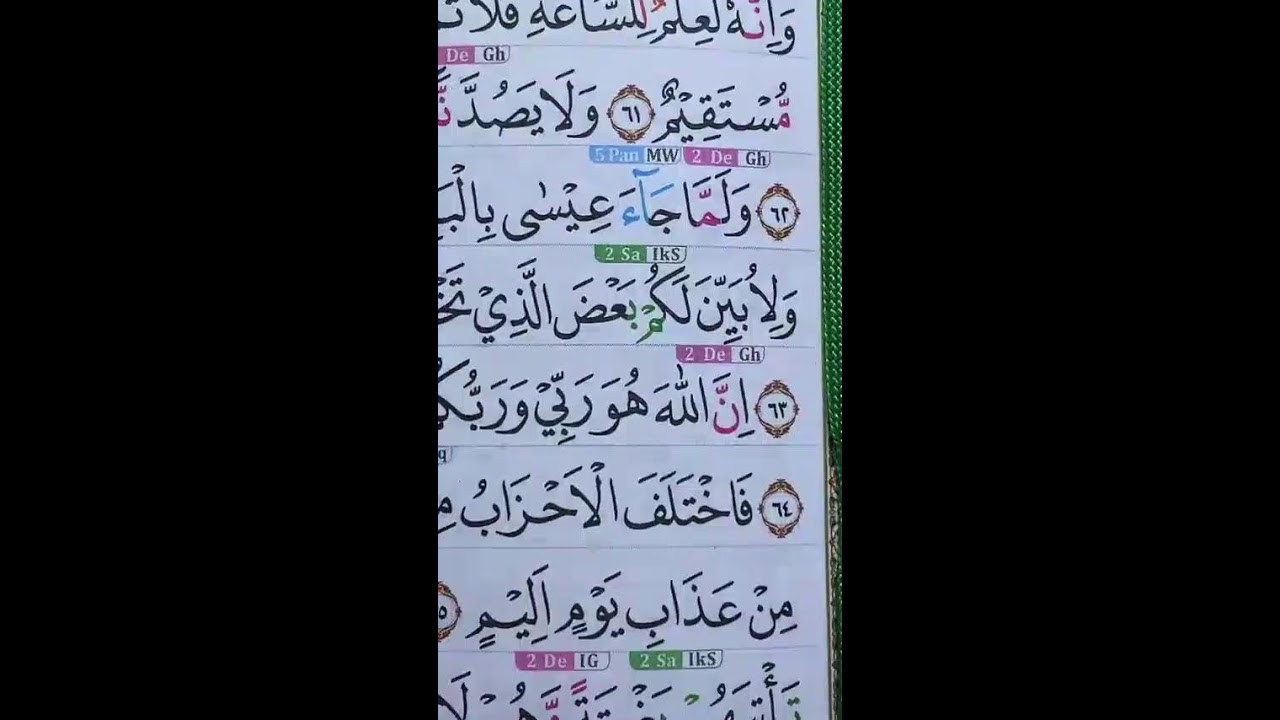 وَاِنَّهٗ لَعِلْمٌ لِّلسَّاعَةِ فَلَا
De Gh
مُّسْتَقِيْمٌ ٦١ وَلَا يَصُدَّنَّ
5 Pan MW 2 De Gh
٦٢ وَلَمَّا جَاۤءَ عِيْسٰى
2 Sa IkS
وَلِاُبَيِّنَ لَكُمْ بَعْضَ الَّذِيْ
2 De Gh
٦٣ اِنَّ اللّٰهَ هُوَ رَبِّيْ
٦٤ فَاخْتَلَفَ الْاَحْزَابُ
مِنْ عَذَابِ يَوْمٍ اَلِيْمٍ
2 De IG 2 Sa IkS
تَأْتِيَهُمْ بَغْتَةً وَّهُمْ لَا